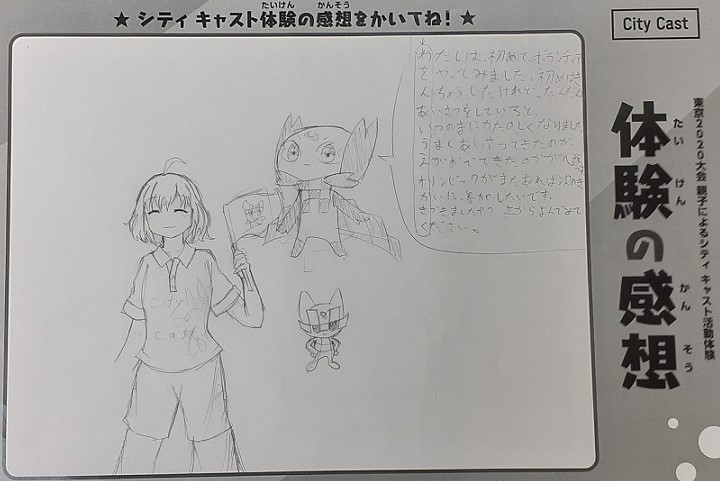 ★ シティ キャスト体験の感想をかいてね! ★
たいけん かんそう
City Cast
わたしは、初めて、ボランティア
をやってみました。初めはき
んちょうしたけれど、だんだん
あいさつをしていると、
いつのまにかたのしくなりました。
うまくあいさつできたのか、
えがおでできたのかが
オリンピックがまたあれば次のき
かいに、参加したいです。
きづきましたか? 上からよんでみて
ください。
City
cast
体験の感想
たいけん かんそう
東京2020大会 親子によるシティ キャスト活動体験